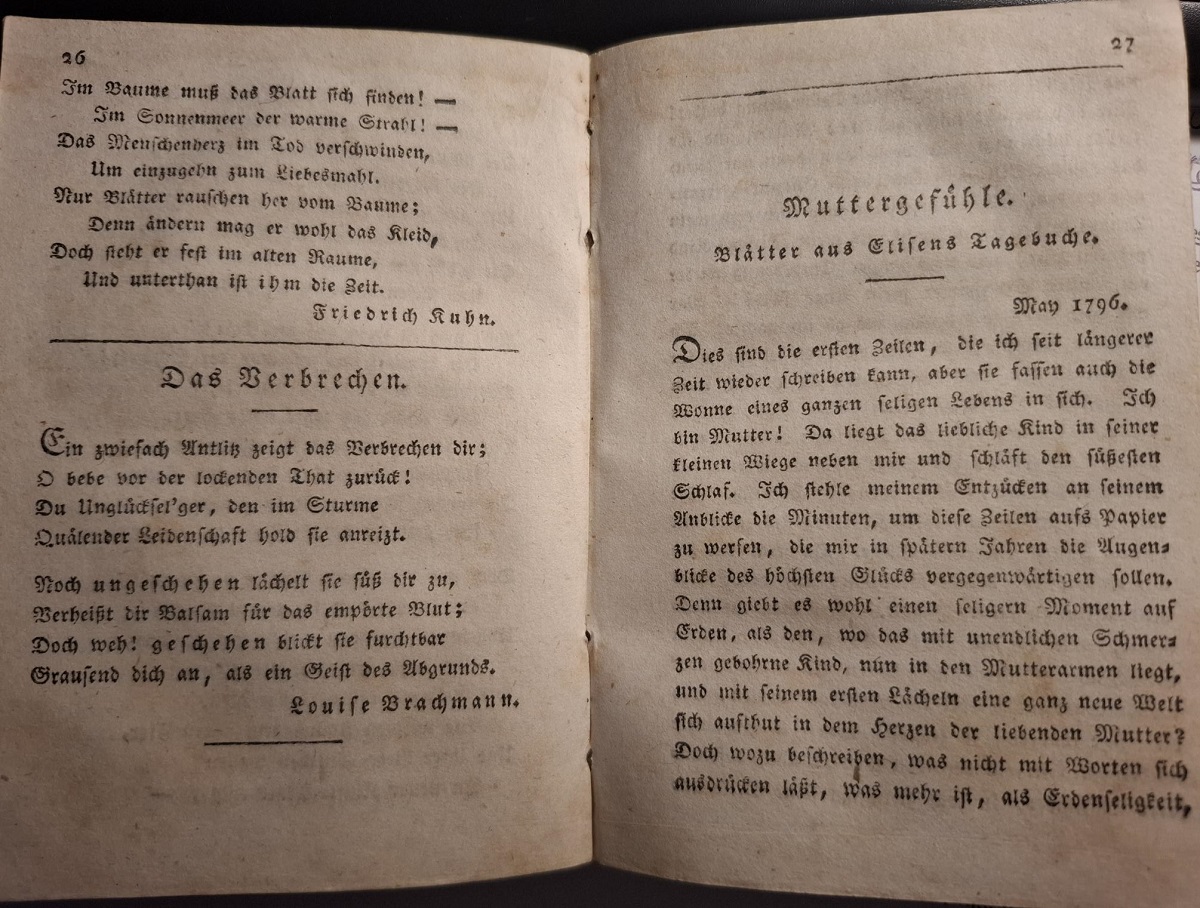 26
Im Baume muß das Blatt ſich finden! —
Im Sonnenmeer der warme Strahl! —
Das Menſchenherz im Tod verſchwinden,
Um einzugehn zum Liebesmahl.
Nur Blätter rauſchen her vom Baume;
Denn ändern mag er wohl das Kleid,
Doch ſteht er feſt im alten Raume,
Und unterthan iſt ihm die Zeit.
Friedrich Kuhn.
Das Verbrechen.
Ein zwiefach Antlitz zeigt das Verbrechen dir;
O bebe vor der lockenden That zurück!
Du Unglückſel'ger, den im Sturme
Quälender Leidenſchaft hold ſie anreizt.
Noch ungeſchehen lächelt ſie ſüß dir zu,
Verheißt dir Balſam für das empörte Blut;
Doch weh! geſchehen blickt ſie furchtbar
Grauſend dich an, als ein Geiſt des Abgrunds.
Louiſe Brachmann.
27
Muttergefühle.
Blätter aus Eliſens Tagebuche.
May 1796.
Dies ſind die erſten Zeilen, die ich ſeit längerer
Zeit wieder ſchreiben kann, aber ſie faſſen auch die
Wonne eines ganzen ſeligen Lebens in ſich. Ich
bin Mutter! Da liegt das liebliche Kind in ſeiner
kleinen Wiege neben mir und ſchläft den ſüßeſten
Schlaf. Ich ſtehle meinem Entzücken an ſeinem
Anblicke die Minuten, um dieſe Zeilen aufs Papier
zu werfen, die mir in ſpätern Jahren die Augen⸗
blicke des höchſten Glücks vergegenwärtigen ſollen.
Denn giebt es wohl einen ſeligern Moment auf
Erden, als den, wo das mit unendlichen Schmer⸗
zen gebohrne Kind, nun in den Mutterarmen liegt,
und mit ſeinem erſten Lächeln eine ganz neue Welt
ſich aufthut in dem Herzen der liebenden Mutter?
Doch wozu beſchreiben, was nicht mit Worten ſich
ausdrücken läßt, was mehr iſt, als Erdenſeligkeit,